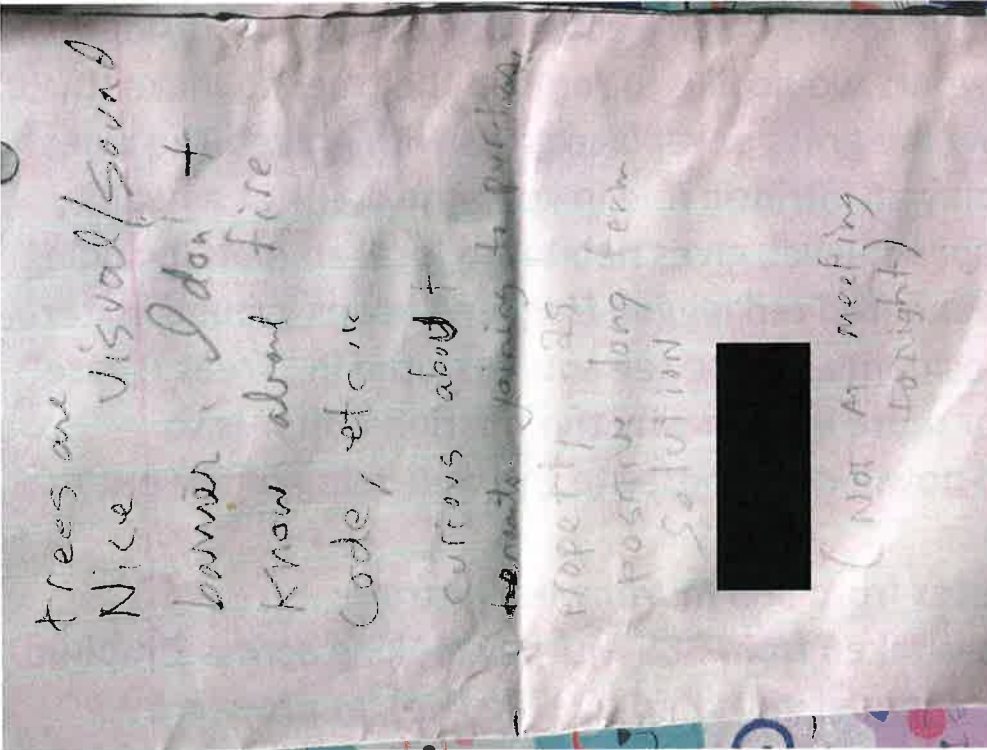 trees are
Nice Visval/Sound
barrier, I don't
Know about fire
Code, etc
currous about
tenants joining to purchase
property as
positive long term
Solution
(Not at meeting
tonight)